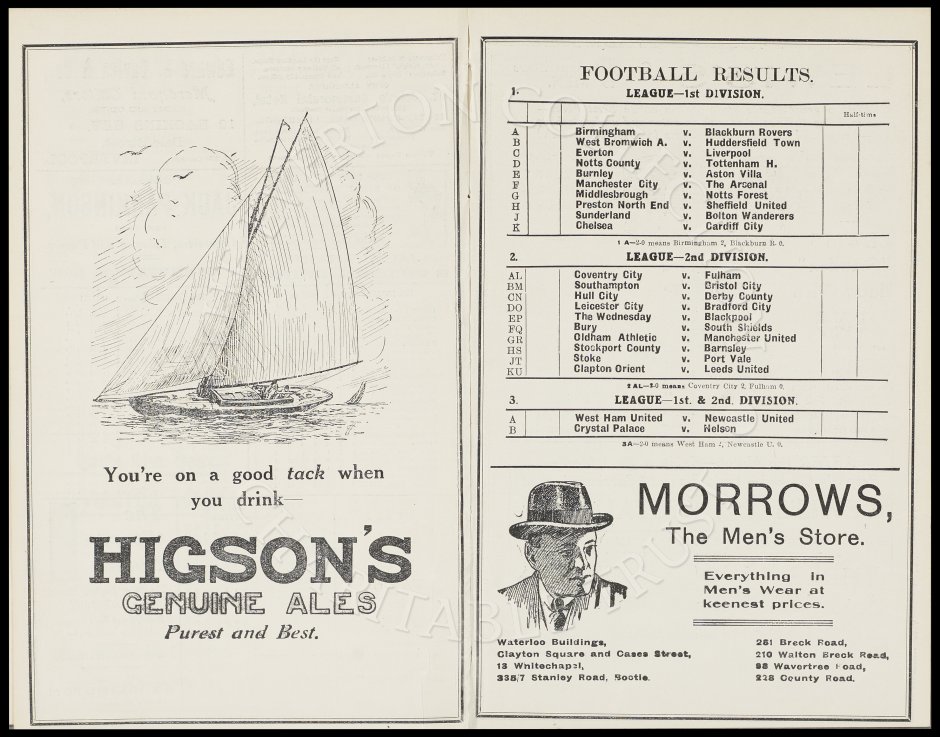 You're on a good tack when
you drink—
HIGSON'S
GENUINE ALES
Purest and Best.
FOOTBALL RESULTS.
1. LEAGUE—1st DIVISION.
Half-time
A Birmingham v. Blackburn Rovers
B West Bromwich A. v. Huddersfield Town
C Everton v. Liverpool
D Notts County v. Tottenham H.
E Burnley v. Aston Villa
F Manchester City v. The Arsenal
G Middlesbrough v. Notts Forest
H Preston North End v. Sheffield United
J Sunderland v. Bolton Wanderers
K Chelsea v. Cardiff City
1 A—2-0 means Birmingham 2, Blackburn R. 0.
2. LEAGUE—2nd DIVISION.
AL Coventry City v. Fulham
BM Southampton v. Bristol City
CN Hull City v. Derby County
DO Leicester City v. Bradford City
EP The Wednesday v. Blackpool
FQ Bury v. South Shields
GR Oldham Athletic v. Manchester United
HS Stockport County v. Barnsley
JT Stoke v. Port Vale
KU Clapton Orient v. Leeds United
2 AL—2-0 means Coventry City 2, Fulham 0.
3. LEAGUE—1st. & 2nd. DIVISION.
A West Ham United v. Newcastle United
B Crystal Palace v. Nelson
3A—2-0 means West Ham 2, Newcastle U. 0.
MORROWS,
The Men's Store.
Everything in
Men's Wear at
keenest prices.
Waterloo Buildings,
Clayton Square and Cases Street,
13 Whitechapel,
335/7 Stanley Road, Bootle.
261 Breck Road,
210 Walton Breck Road,
98 Wavertree Road,
228 County Road.
EVERTON COLLECTION
CHARITABLE TRUST